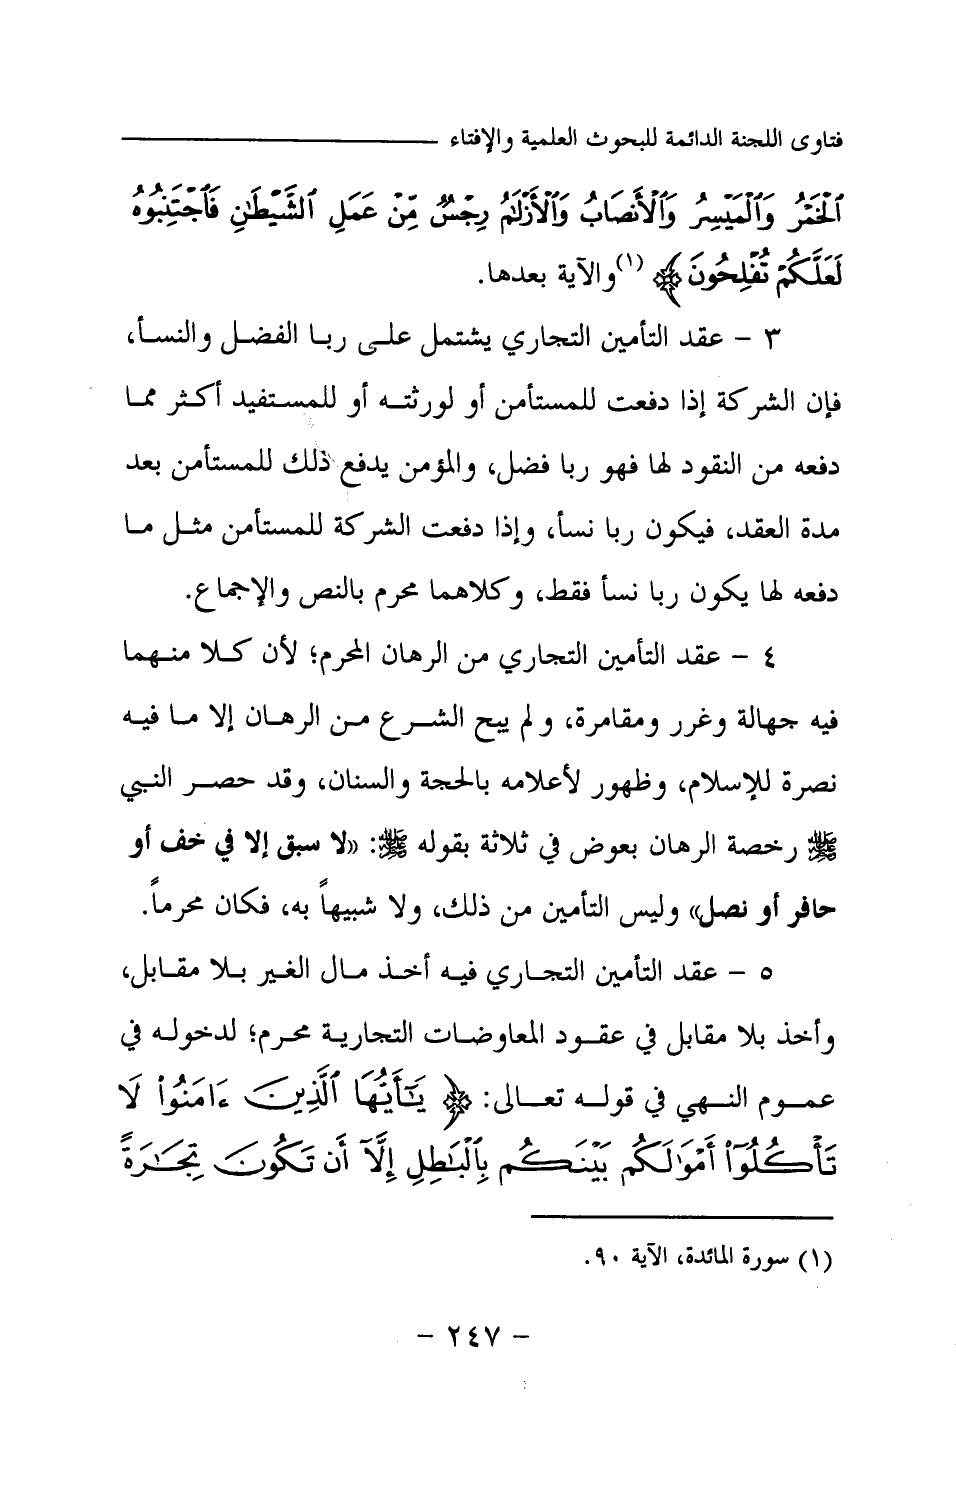 فتاوى اللجنة الدائمة للبحوث العلمية والإفتاء
ٱلْخَمْرُ وَٱلْمَيْسِرُ وَٱلْأَنصَابُ وَٱلْأَزْلَٰمُ رِجْسٌ مِّنْ عَمَلِ ٱلشَّيْطَٰنِ فَٱجْتَنِبُوهُ
لَعَلَّكُمْ تُفْلِحُونَ﴾ (١) والآية بعدها.
٣ – عقد التأمين التجاري يشتمل على ربا الفضل والنسأ،
فإن الشركة إذا دفعت للمستأمن أو لورثته أو للمستفيد أكثر مما
دفعه من النقود لها فهو ربا فضل، والمؤمن يدفع ذلك للمستأمن بعد
مدة العقد، فيكون ربا نسأ، وإذا دفعت الشركة للمستأمن مثل ما
دفعه لها يكون ربا نسأ فقط، وكلاهما محرم بالنص والإجماع.
٤ – عقد التأمين التجاري من الرهان المحرم؛ لأن كلا منهما
فيه جهالة وغرر ومقامرة، ولم يبح الشرع من الرهان إلا ما فيه
نصرة للإسلام، وظهور لأعلامه بالحجة والسنان، وقد حصر النبي
ﷺ رخصة الرهان بعوض في ثلاثة بقوله ﷺ: «لا سبق إلا في خف أو
حافر أو نصل» وليس التأمين من ذلك، ولا شبيهاً به، فكان محرماً.
٥ – عقد التأمين التجاري فيه أخذ مال الغير بلا مقابل،
وأخذ بلا مقابل في عقود المعاوضات التجارية محرم؛ لدخوله في
عموم النهي في قوله تعالى: ﴿يَٰٓأَيُّهَا ٱلَّذِينَ ءَامَنُوا۟ لَا
تَأْكُلُوٓا۟ أَمْوَٰلَكُم بَيْنَكُم بِٱلْبَٰطِلِ إِلَّآ أَن تَكُونَ تِجَٰرَةً
(١) سورة المائدة، الآية ٩٠.
– ٢٤٧ –